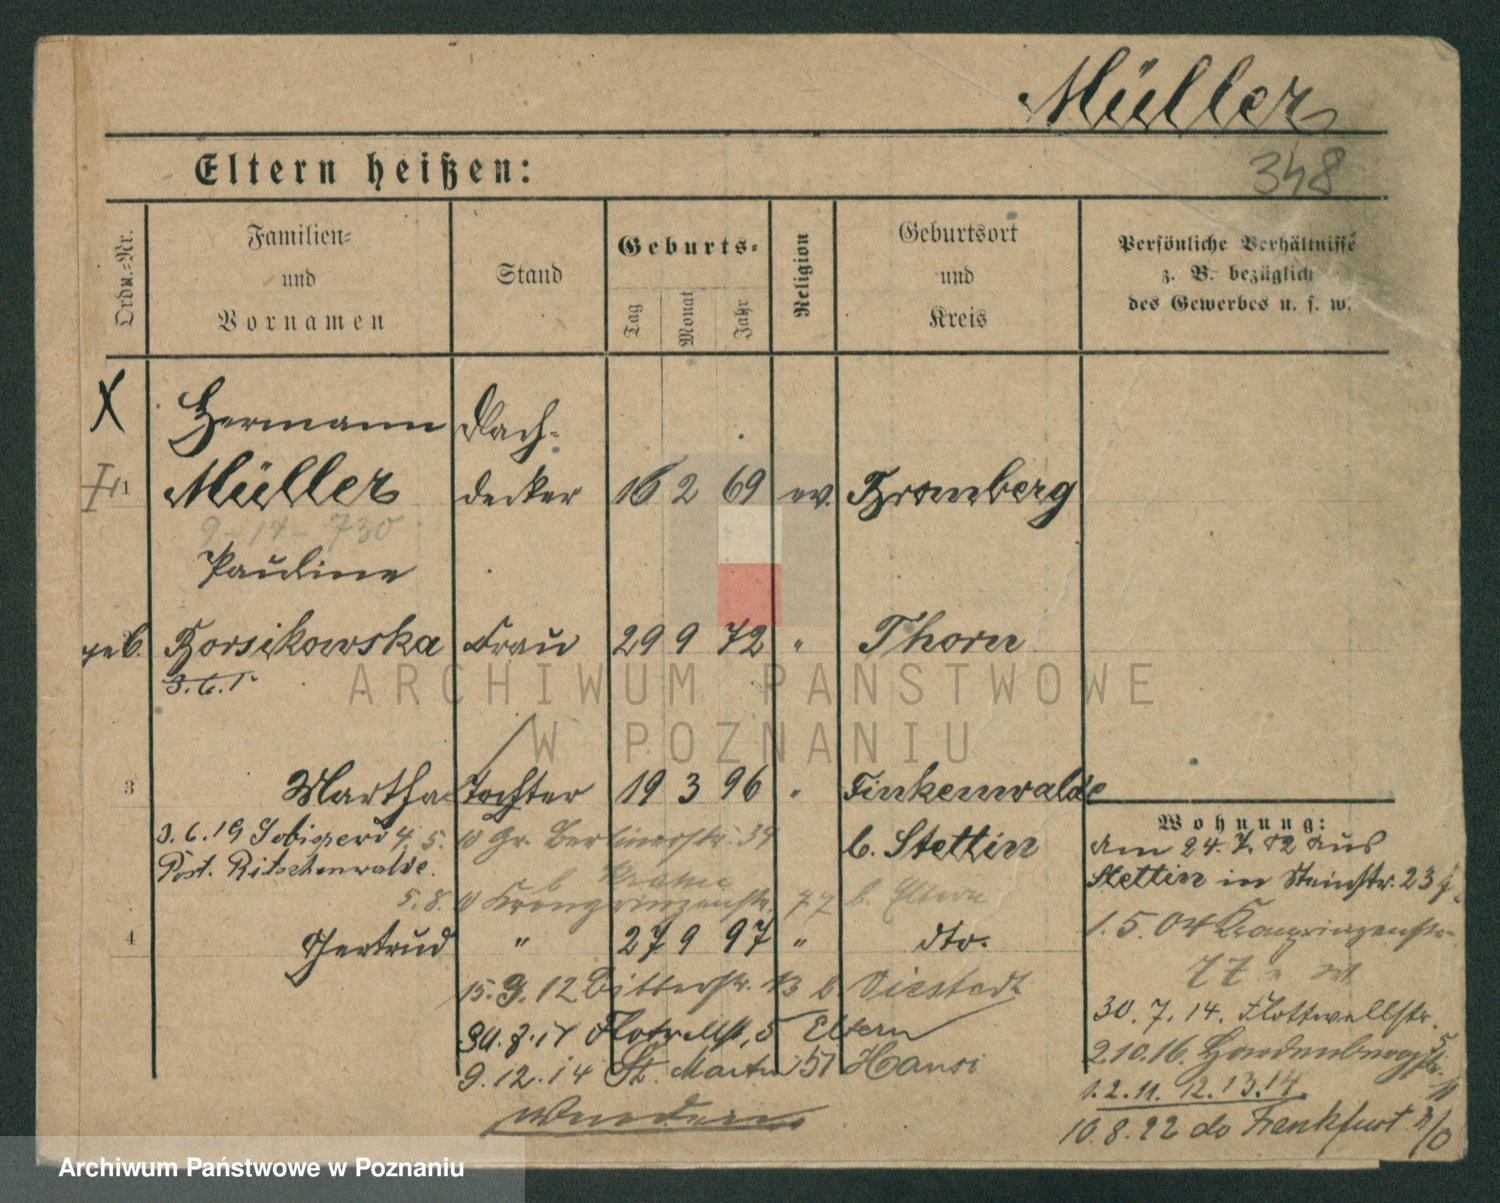 Müller
348
Eltern heißen:
Ordn.=Nr.
Familien=
und
Vornamen
Stand
Geburts=
Tag
Monat
Jahr
Religion
Geburtsort
und
Kreis
Persönliche Verhältnisse
z. B. bezüglich
des Gewerbes u. s. w.
X
Hermann Dach-
1 Müller decker 16 2 69 ev. Bromberg
9-14-730
Pauline
geb. Borsikowska Frau 29 9 72 " Thorn
3.6.1
ARCHIWUM PAŃSTWOWE
W POZNANIU
3 Martha Tochter 19 3 96 " Finkenwalde
b. Stettin
3.6.19 4.5. Gr. Berlinerstr. 39
Post. Ritschenwalde.
5.8. Kronprinzenstr. 77 b. Eltern
4 Gertrud " 27 9 97 " dto.
15.9.12 Bitterstr. 13 b.
30.7.14 Flotwellst. 5 Eltern
9.12.14 St. Martin 51
Wohnung:
Am 24.7.02 aus
Stettin in Steinstr. 23
1.5.04 Kronprinzenstr.
77
30.7.14. Flottwellstr. 5
2.10.16. Hardenbergstr. 11
1.2.11. 12.13.14.
10.8.22 do Frankfurt a/O
Archiwum Państwowe w Poznaniu